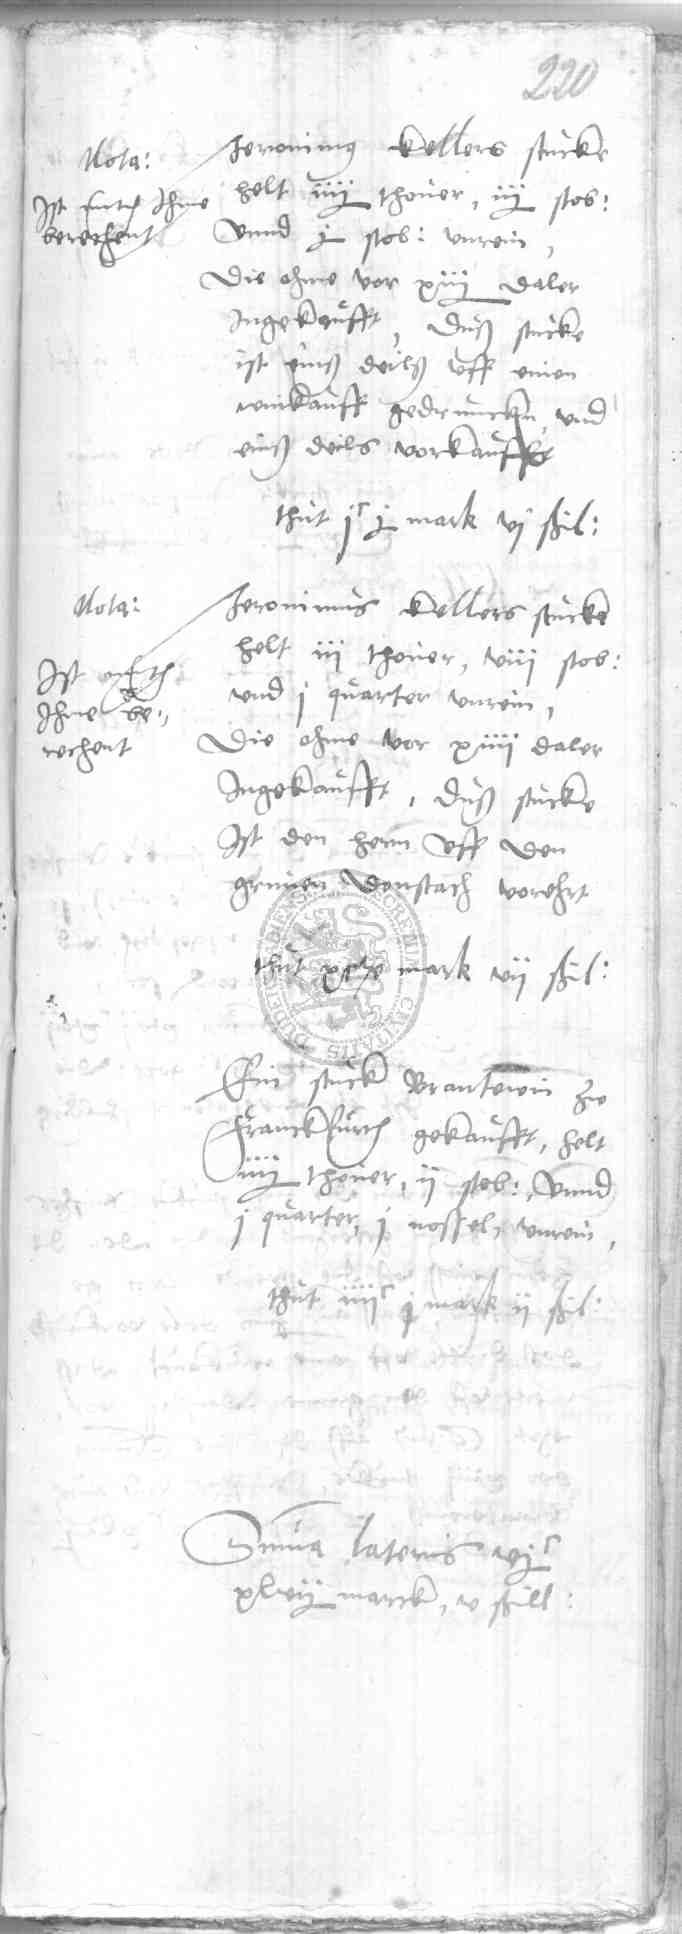 220
Nota:
Ist  Ihme
berechent
Jeronimus Kellers stucke
helt iiij thouer, iij stob:
Vnnd j stob: vnrein,
Die ohme vor xiij daler
Ingekaufft, Duß stucke
ist einß deilß vff einen
winkauff gedruncken, vnd
einß deils vorkaufft
thut jc j mark vj ßil:
Nota:
Ist
Ihme be-,,
rechent
Jeronimus Kellers stucke
helt iij thouer, viij stob:
vnd j quarter vnrein,
Die ohme vor xiiij daler
Ingekaufft, Duß stucke
Ist den hern Vff den
grunen Donstach vorehrt
thut mark vij ßil:
Ein stuck Brantewin zu
Franckfurth gekaufft, helt
iiij thouer, ij stob:, Vnnd
j quarter, j nossel, vnrein,
thut iiijc j mark ij ßil:
Suma lateris vjc
xlvij marck, v ßill:
SECRETUM CIVITATIS